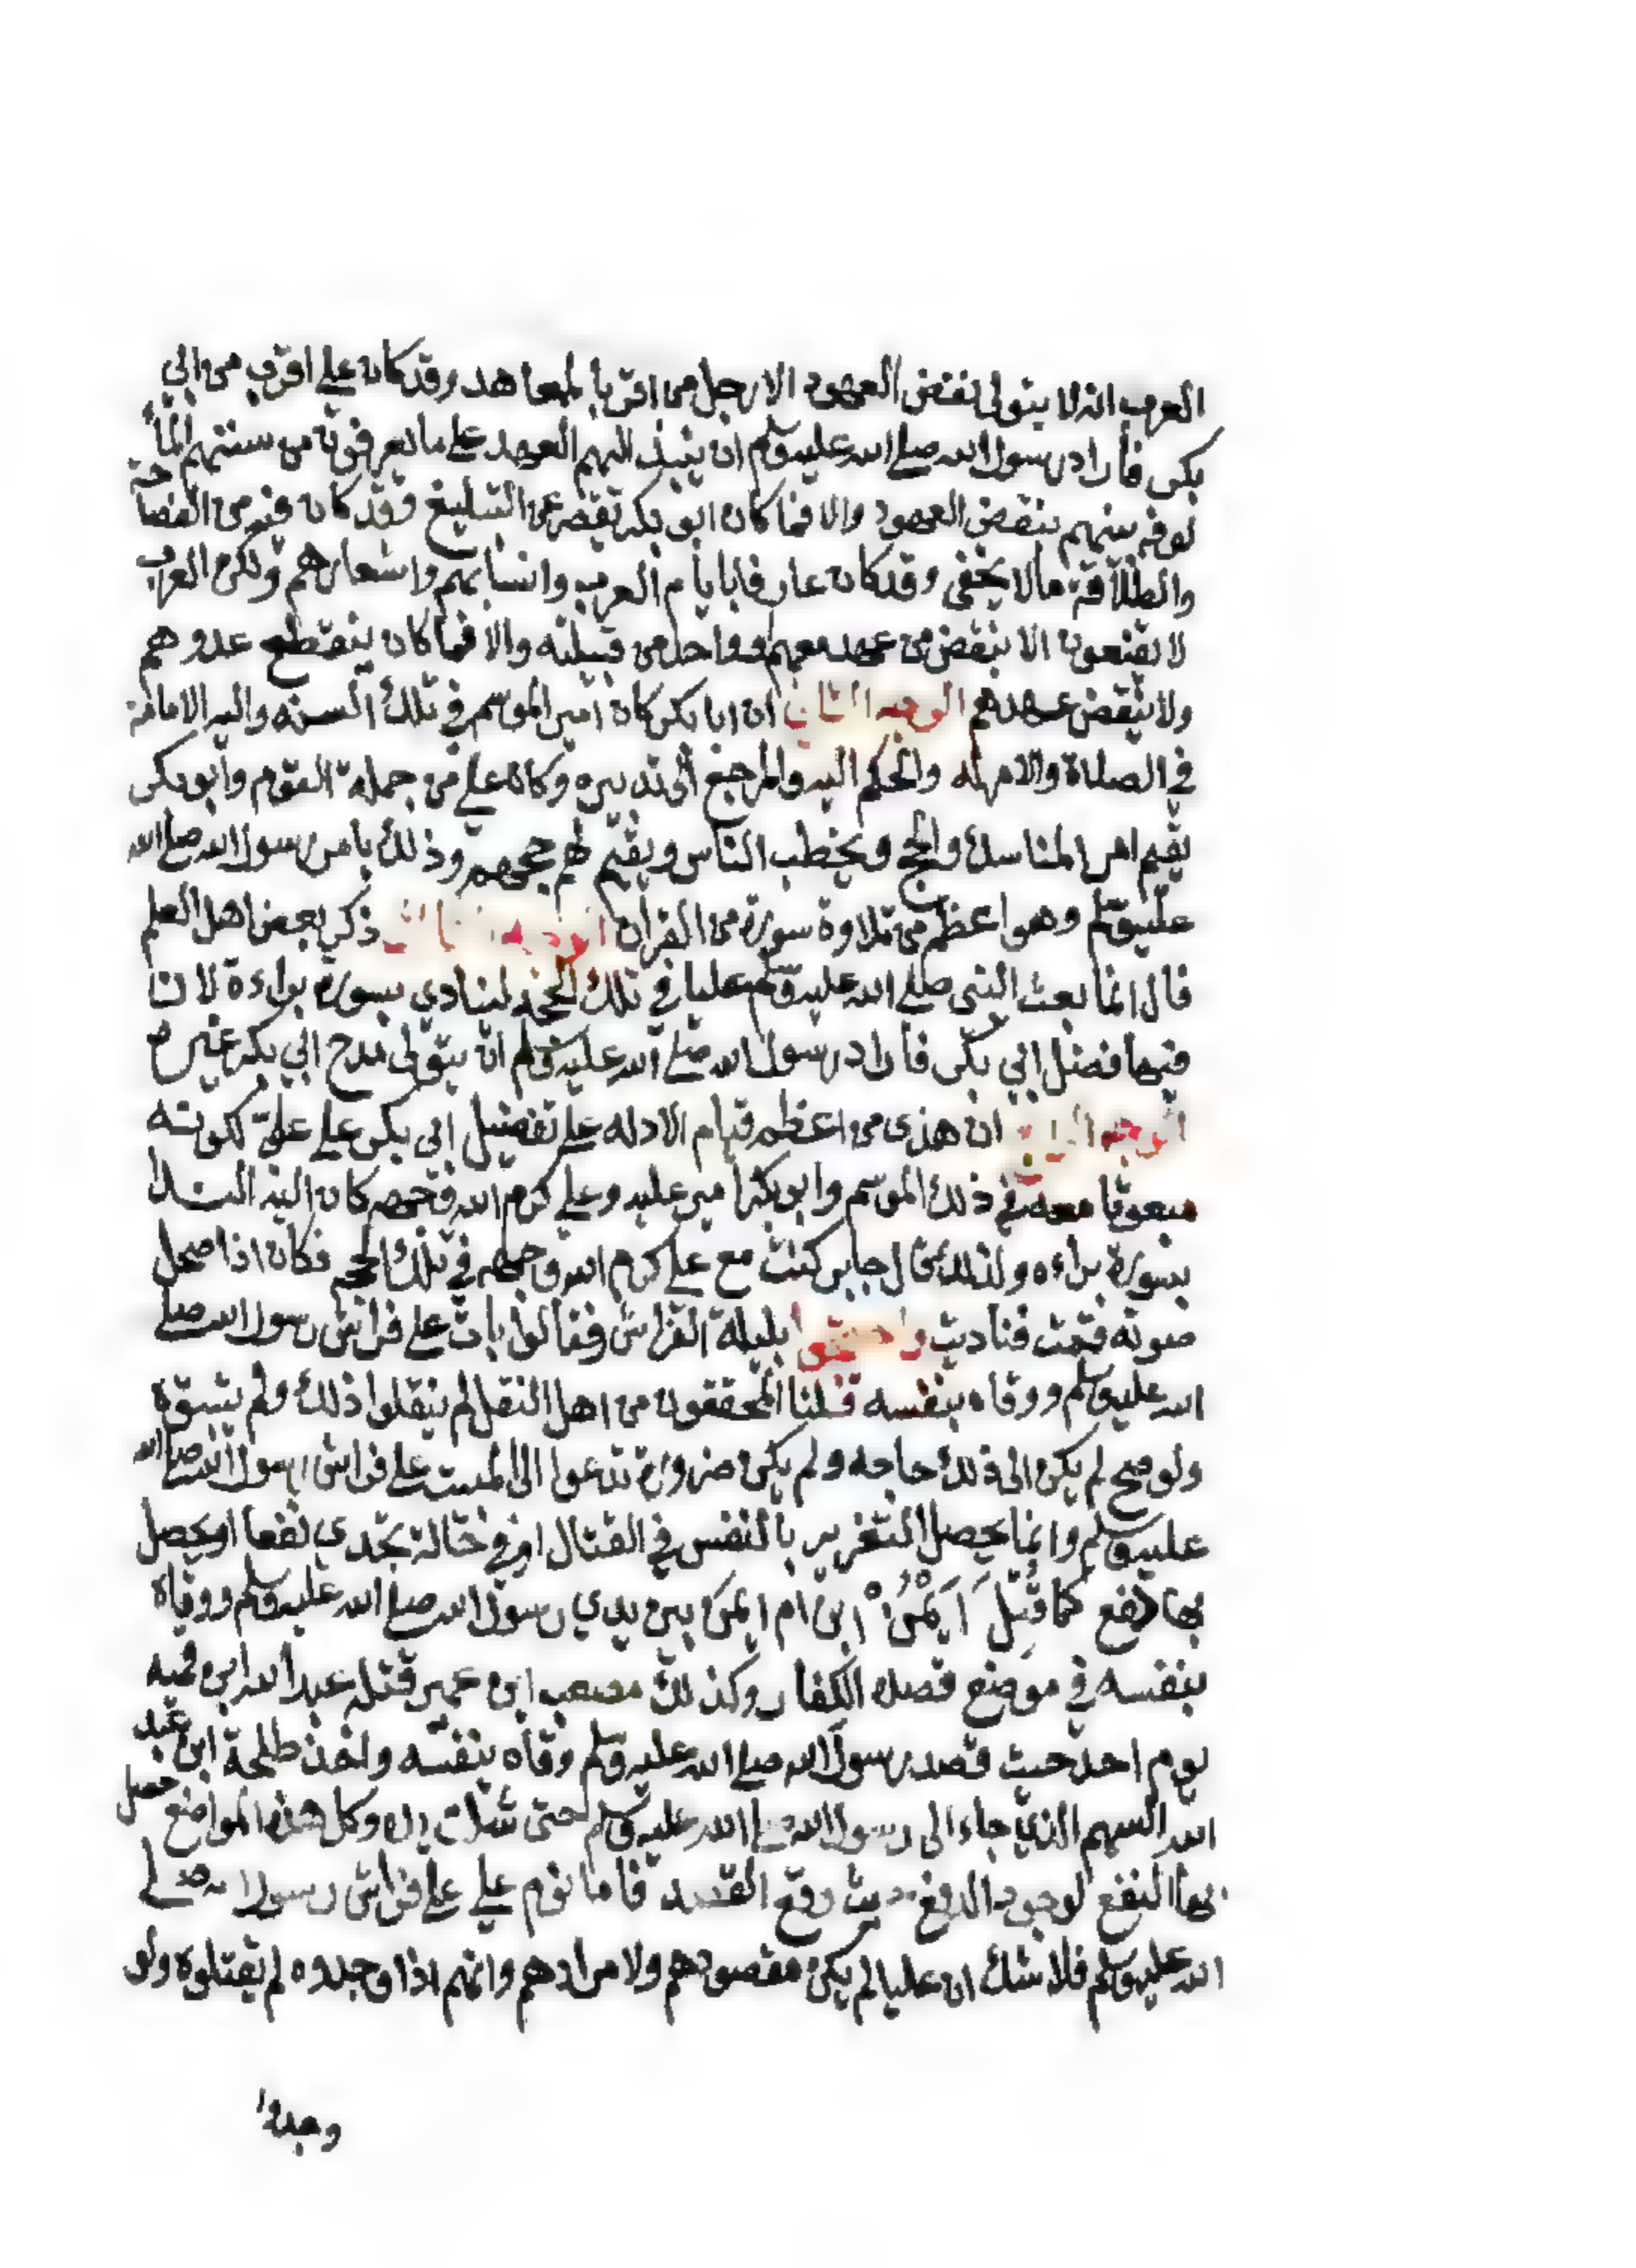 العرب انه لا يتولى نقض العهود الا رجل من اقربا المعاهد وقد كان علي اقرب من ابي
بكر فأراد رسول الله صلى الله عليه وسلم ان ينبذ اليهم العهد على ما يعرفونه من سنتهم المأ
لوفه بينهم بنقض العهود والا فما كان ابو بكر تقصر عن التبليغ وقد كان فيه من الفصاحة
والطلاقة مالا يخفى وقد كان عارفا بايام العرب وانسابهم واشعارهم ولكن العرب
لا يقنعون الا بنقض من عهد معهم وواحد من قبيلته والا فما كان ينقطع عذرهم
ولا ينقض عهدهم الوجه الثاني ان ابا بكر كان امير الموسم في تلك السنه واليه الامامة
في الصلاة والامر له والحكم اليه والمرجع الى تدبيره وكان علي من جملة القوم وابو بكر
يقيم امر المناسك والحج ويخطب الناس ويقيم لهم حجهم وذلك بامر رسول الله صلى الله
عليه وسلم وهو اعظم من تلاوة سورة من القرآن الوجه الثالث ذكر بعض اهل العلم
قال انما بعث النبي صلى الله عليه وسلم عليا في تلك الحجة لينادي بسورة براءة لان
فيها فضل ابي بكر فأراد رسول الله صلى الله عليه وسلم ان يتولى مدح ابي بكر غيره
الوجه الرابع ان هذى من اعظم قيام الادله على تفضيل ابي بكر على علي لكونه
مبعوثا معه في ذلك الموسم وابو بكر امير عليه وعلي كرم الله وجهه كان اليه الندا
بسورة براءه ولذلك قال جابر كنت مع علي كرم الله وجهه في تلك الحجه فكان اذا صحل
صوته قمت فناديت واحتجوا بليلة الفراش وقالوا بات على فراش رسول الله صلى
الله عليه وسلم ووقاه بنفسه قلنا المحققون من اهل النقل لم ينقلوا ذلك ولم يثبتوه
ولو صح لم يكن الى ذلك حاجه ولم يكن ضرورة تدعوا الى المبيت على فراش رسول الله صلى الله
عليه وسلم وانما يحصل التغرير بالنفس في القتال او في حالة تجدي نفعا او يحصل
بها دفع كما قُتِلَ اَيمنُ ابن ام ايمن بين يدي رسول الله صلى الله عليه وسلم ووقاه
بنفسه في موضع قصده الكفار وكذلك مصعب ابن عمير قتله عبد الله ابن قميه
يوم احد حيث قصد رسول الله صلى الله عليه وسلم وقاه بنفسه واخذ طلحة ابن عبيد
الله السهم الذي جاء الى رسول الله صلى الله عليه وسلم حتى شلت يده وكل هذه المواضع حصل
بها النفع لوجود الدفع حيث وقع القصد فأما نوم علي على فراش رسول الله صلى
الله عليه وسلم فلا شك ان عليا لم يكن مقصودهم ولا مرادهم وانهم اذا وجدوه لم يقتلوه ولو
وجدوا